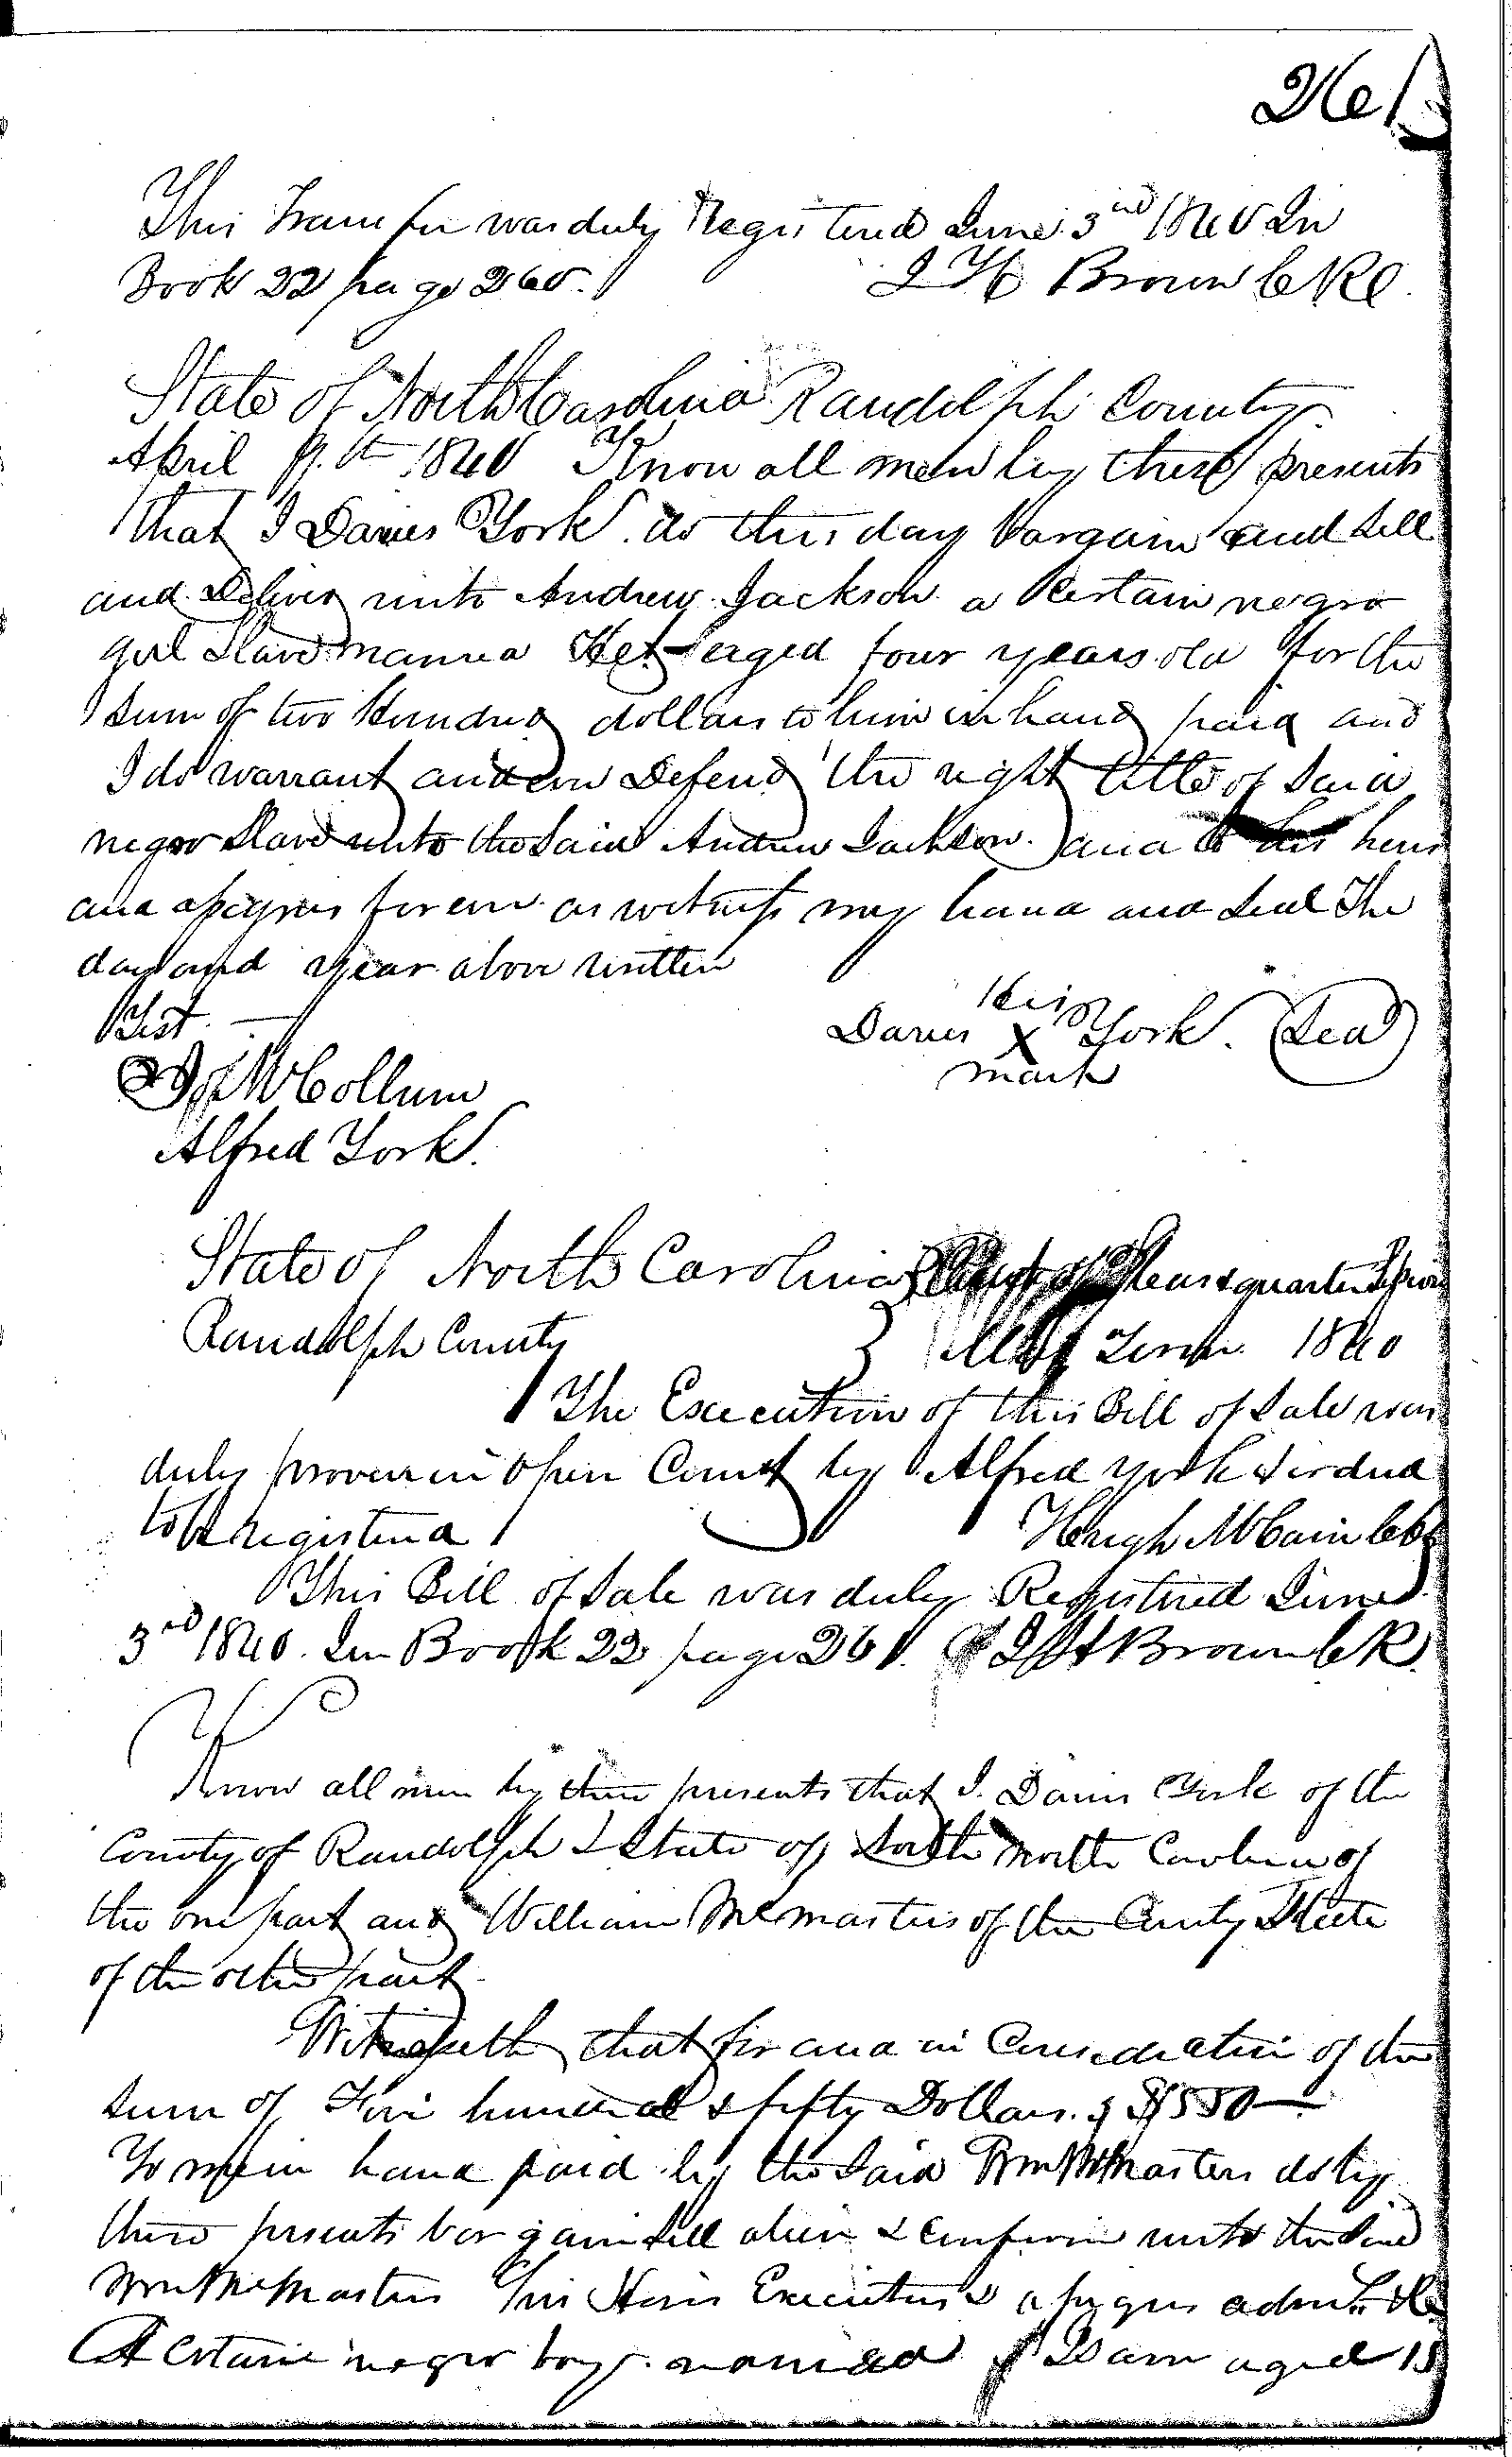 261
This Transfer was duly Registered June 3rd 1840 In
Book 22 page 260. J H Brown C R
State of North Carolina Randolph County
April 9th 1840 Know all men by these presents
that I Davis York do this day bargain and sell
and Deliver unto Andrew Jackson a Certain negro
girl Slave named Het aged four years old for the
Sum of two Hundred dollars to him in hand paid and
I do warrant and ever Defend the right title of Said
negro Slave unto the Said Andrew Jackson and to his heirs
and assigns forever as witness my hand and Seal The
day and year above written
Test. his
Davis X York. (Seal)
mark
McCollum
Alfred York.
State of North Carolina } Court of Pleas & quarter Sessions
Randolph County } May Term 1840
The Execution of this Bill of Sale was
duly proven in Open Court by Alfred York & ordered
to be registered Hugh McCain Clk
This Bill of Sale was duly Registered June
3rd 1840. In Book 22 page 261. J H Brown C R.
Know all men by these presents that I. Davis York of the
County of Randolph & State of North North Carolina of
the one part and William McMasters of the County & State
of the other part
Witnesseth that for and in Consideration of the
sum of Five hundred & fifty Dollars. $550
To me in hand paid by the Said Wm McMasters do by
these presents bargain sell alien & Confirm unto the Said
Wm McMasters his Heirs Executors & assigns adms. &c
A Certain negro boy. named Sam aged 15